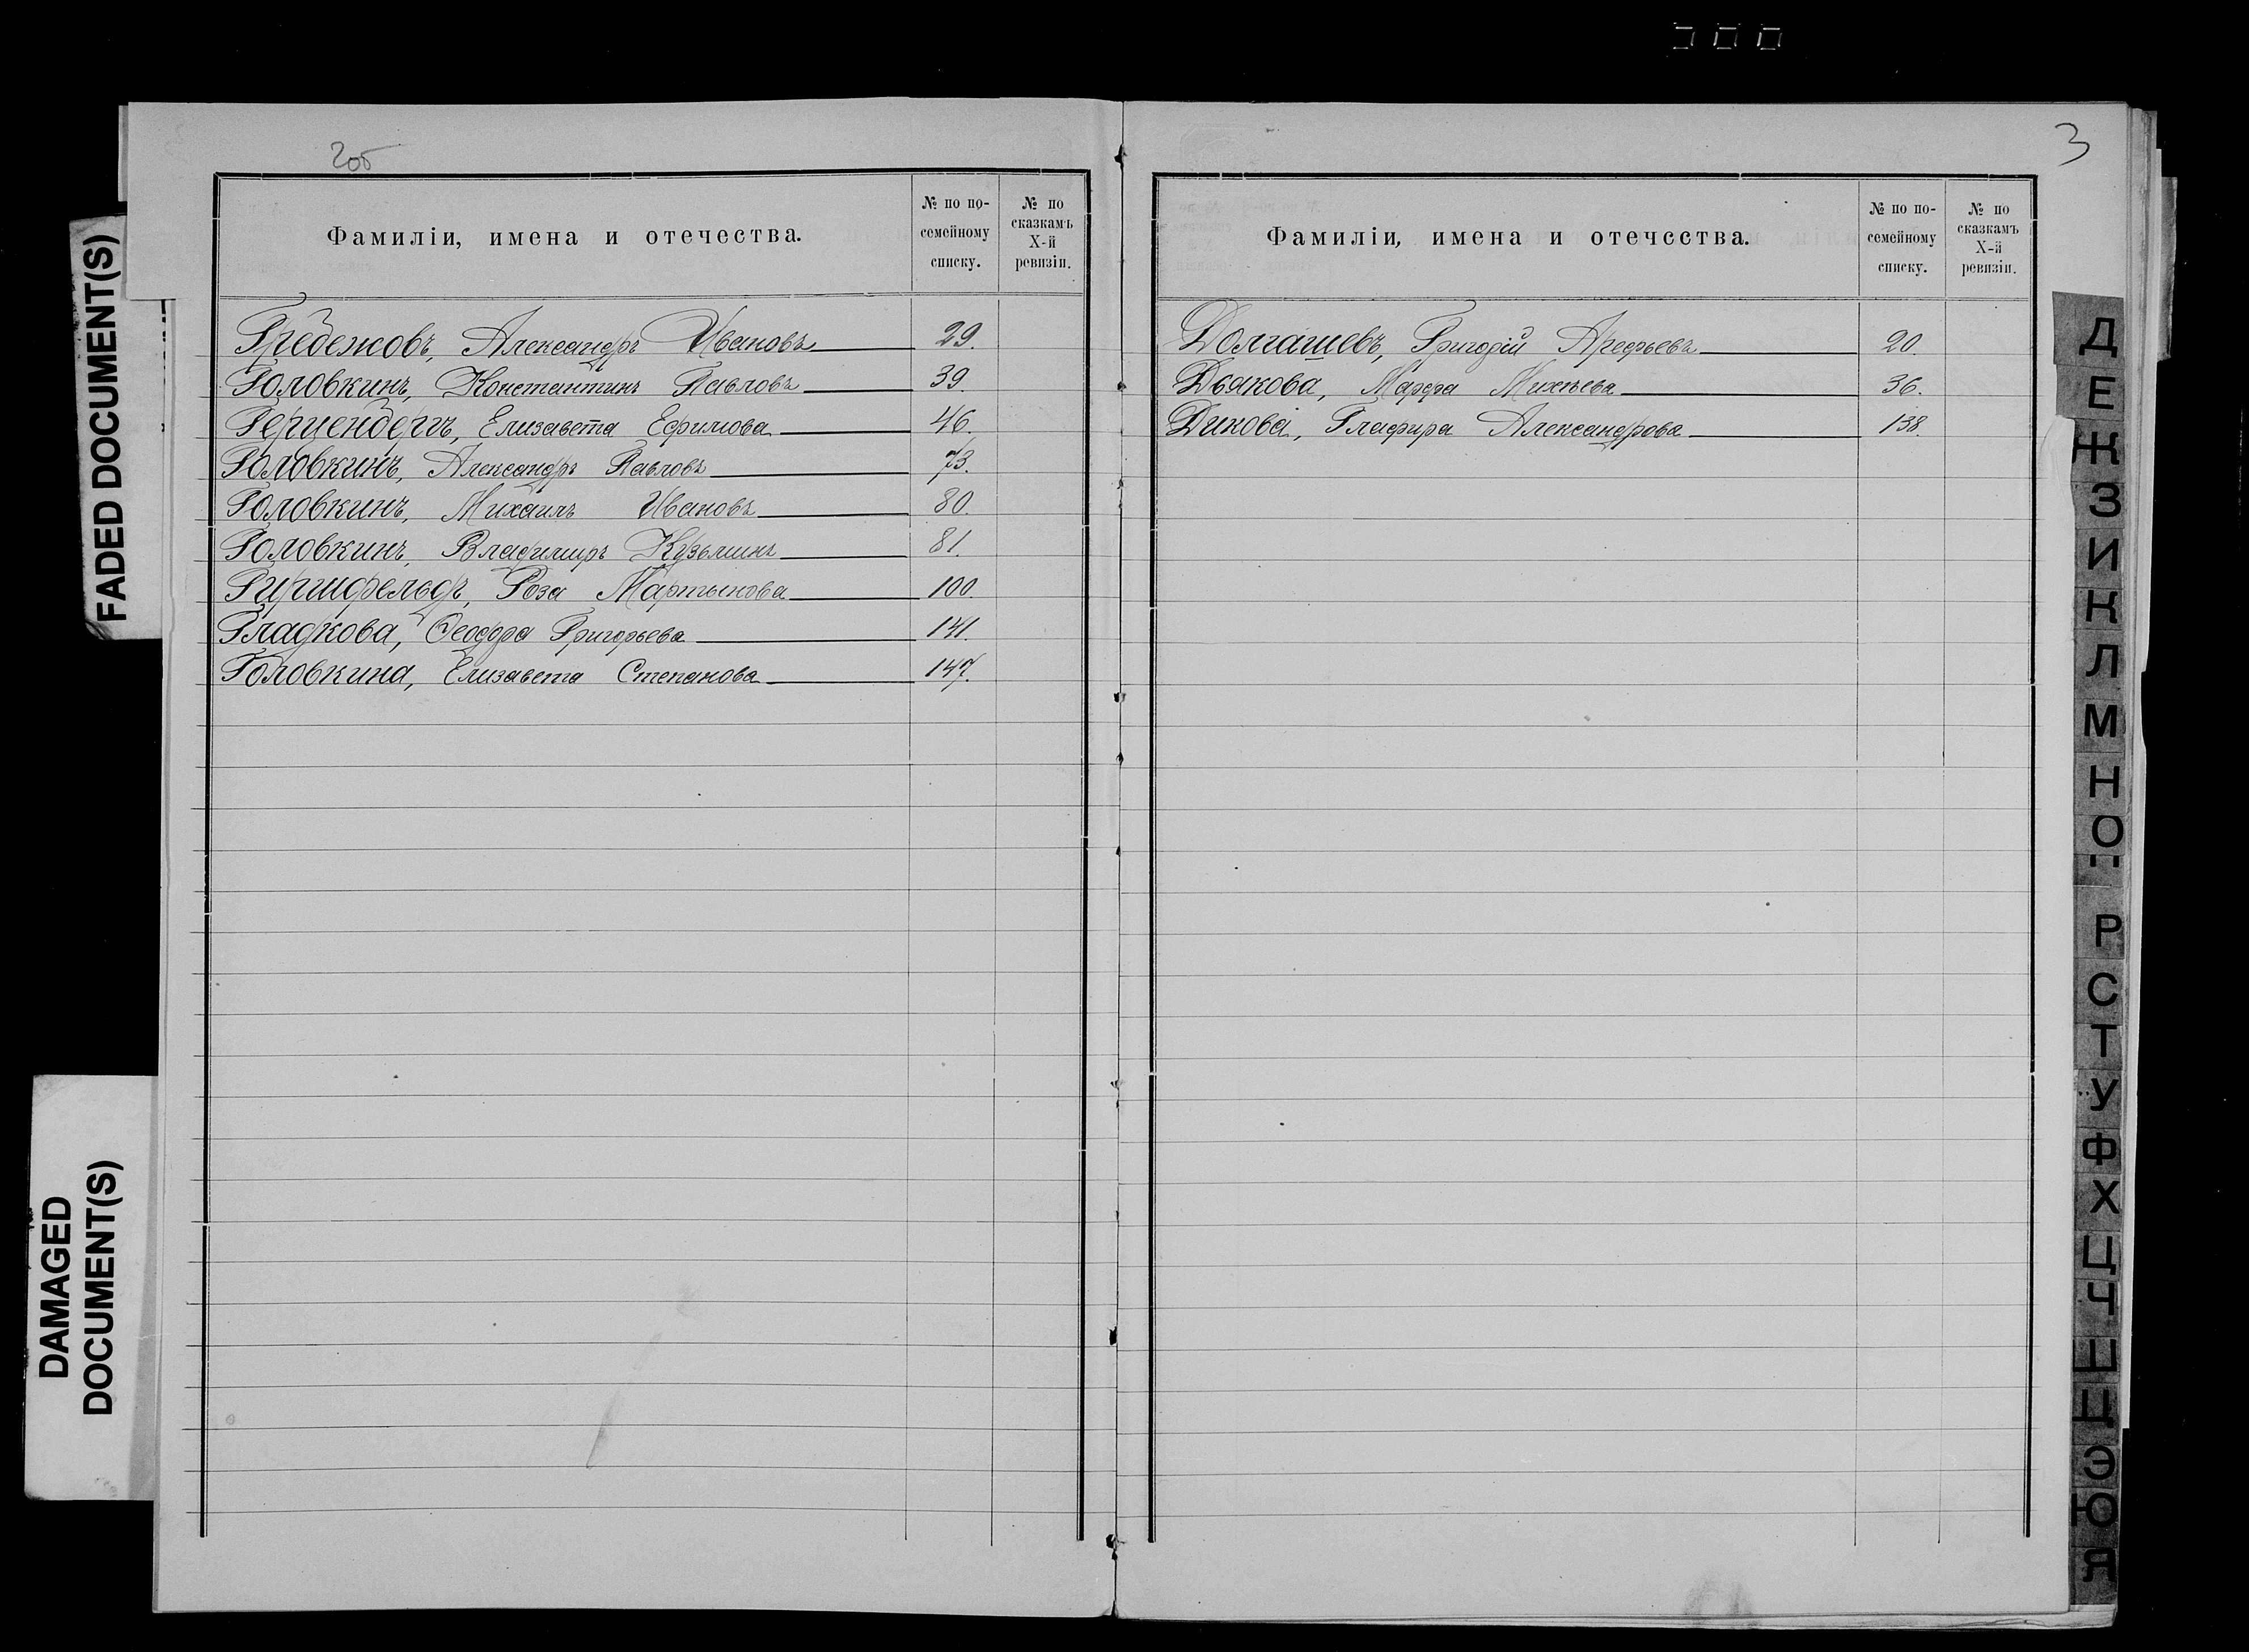 2об
Фамиліи, имена и отечества.
№ по по-
семейному
списку.
№ по
сказкамъ
X-й
ревизіи.
Гребенковъ, Александръ Ивановъ 29.
Головкинъ, Константинъ Павловъ 39.
Герценбергъ, Елизавета Ефимова 46.
Головкинъ, Александръ Павловъ 73.
Головкинъ, Михаилъ Ивановъ 80.
Головкинъ, Владимиръ Кузьминъ 81.
Гиршфельдъ, Роза Мартынова 100
Гладкова, Ѳеодора Григорьева 141.
Головкина, Елизавета Степанова 147.
3
Фамиліи, имена и отечества.
№ по по-
семейному
списку.
№ по
сказкамъ
X-й
ревизіи.
Долгашевъ, Григорій Арефьевъ 20.
Дьякова, Марфа Михѣева 36.
Дикова, Глафира Александрова 138.
Д
Е
Ж
З
И
К
Л
М
Н
О
Р
С
Т
У
Ф
Х
Ц
Ч
Ш
Щ
Э
Ю
Я
FADED DOCUMENT(S)
DAMAGED
DOCUMENT(S)